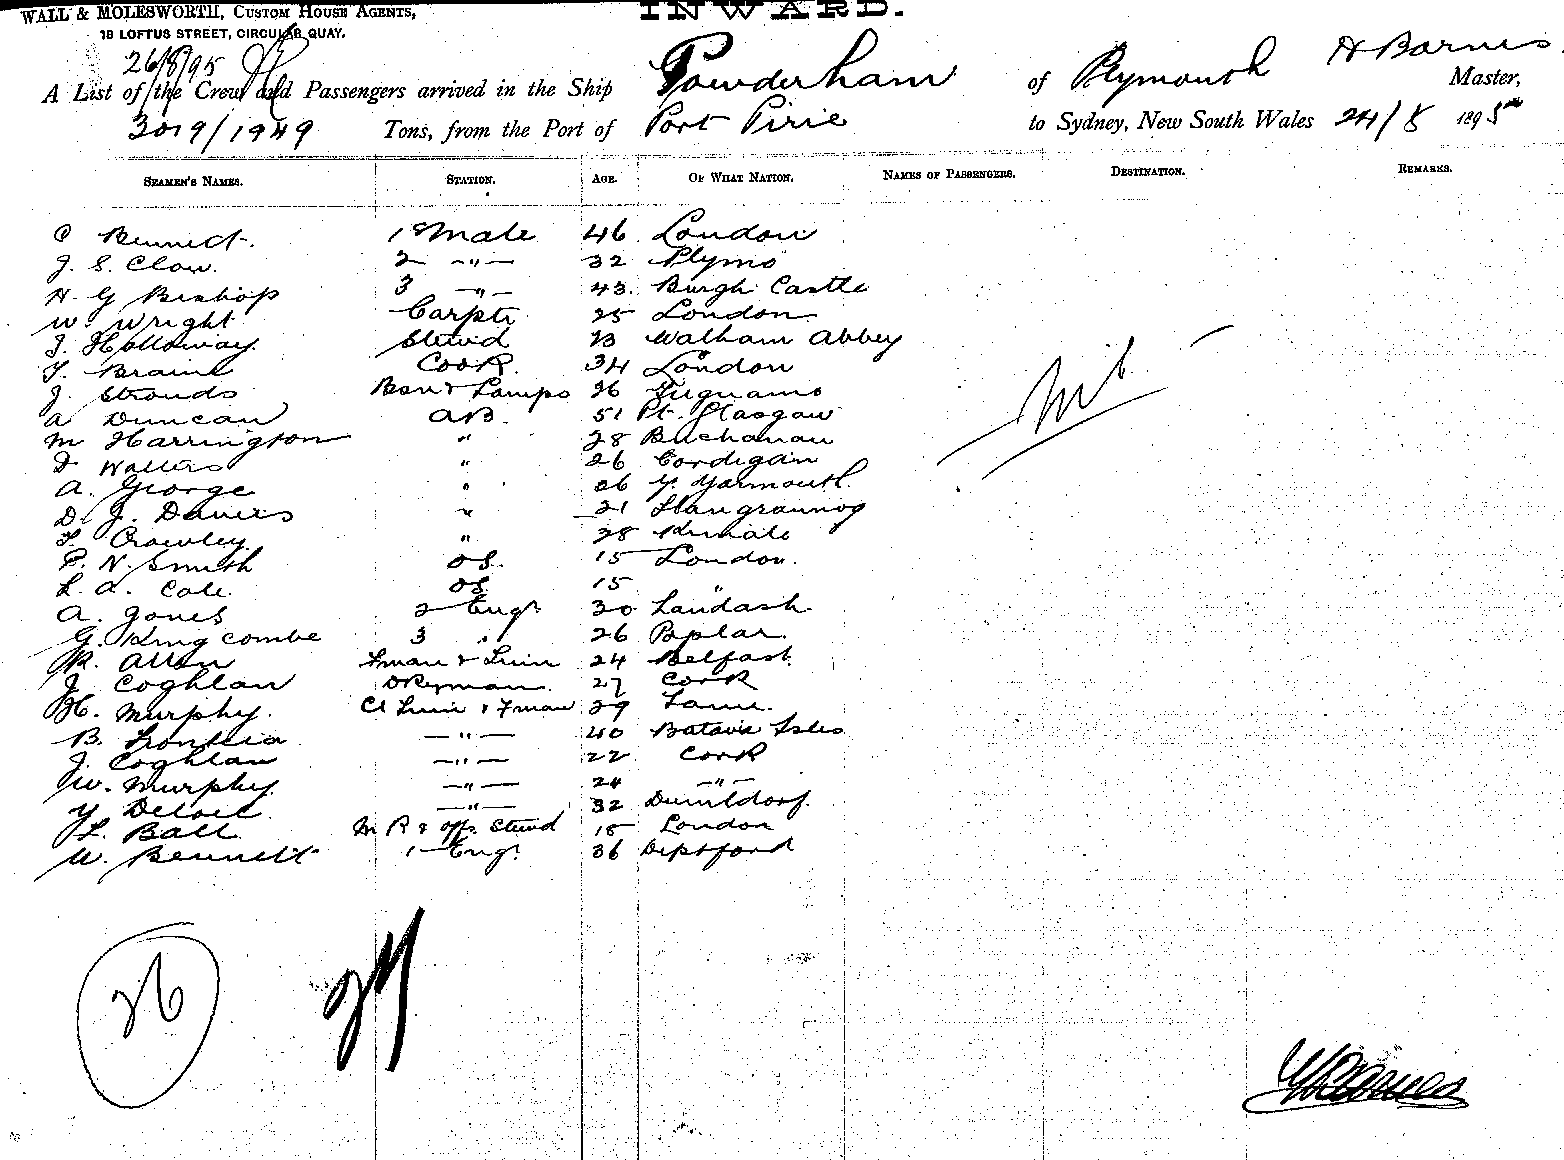 WALL & MOLESWORTH, CUSTOM HOUSE AGENTS,
18 LOFTUS STREET, CIRCULAR QUAY.
INWARD.
26/8/95
A List of the Crew and Passengers arrived in the Ship Powderham of Plymouth H Barnes Master,
3019/1949 Tons, from the Port of Port Pirie to Sydney, New South Wales 24/8 1895
SEAMEN'S NAMES. STATION. AGE. OF WHAT NATION. NAMES OF PASSENGERS. DESTINATION. REMARKS.
C Bennett. 1 Mate 46 London
J. S. Clow. 2 -"- 32 Plymo
H. G Bishop 3 -"- 43. Burgh Castle
W. Wright Carptr 25 London
J. Holloway. Stewd 23 Waltham Abbey
T. Braine Cook. 34 London
J. Strouds Bsn & Lamps 26
A Duncan AB. 51 Pt. Glasgow
M Harrington " 28 Buchanan
D Walters " 26 Cardigan
A. George " 26 Yarmouth.
D. J. Davies " 21 Llangrannog
Crowley. " 28 Kinsale
P. N. Smith OS. 15 London.
L. A. Cole. OS. 15 "
A. Jones 2 Engr 30
G. Kingcombe 3 " 26 Poplar.
R. Allen Fman & 24 Belfast.
J. Coghlan Dkeyman. 27 Cork
H. Murphy. & Fman 29
B. -"- 40 Batavia Isles
J. Coghlan -"- 22 Cork
W. Murphy. -"- 24 -"-
-"- 32
L. Ball M R & offs. Stewd 18 London
W. Bennett 1 Engr 36 Deptford
Nil
26